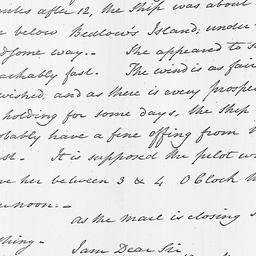 after 12, the Ship was about
below Bedlow's Island, under
some way. - She appeared to s
arkably fast. The wind is as fair
wished, and as there is every prospe
holding for some days, the Ship
obably have a fine offing from t
st. - It is supposed the pilot w
ve her between 3 & 4 O Clock th
rnoon. -
as the mail is closing
thing -
I am Dear Sir